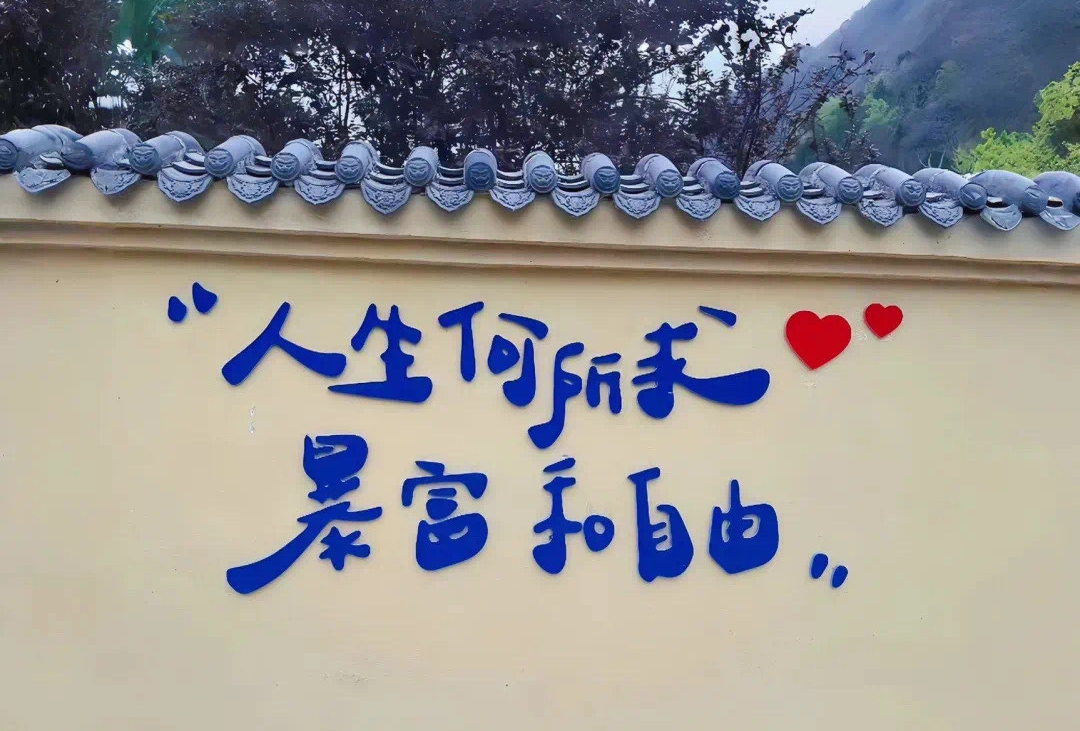 “人生何所求
暴富和自由”